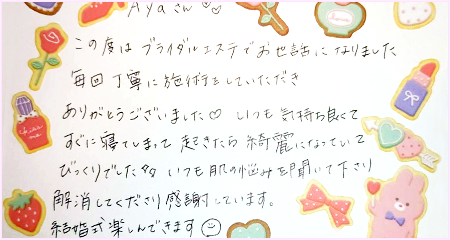 Ayaさん♡♡
この度は ブライダルエステでお世話になりました
毎回丁寧に施術をしていただき
ありがとうございました♡ いつも気持ち良くて
すぐに寝てしまって 起きたら 綺麗になっていて
びっくりでした いつも肌の悩みを聞いて下さり
解消してくださり感謝しています。
結婚式楽しんできます
Kiss me